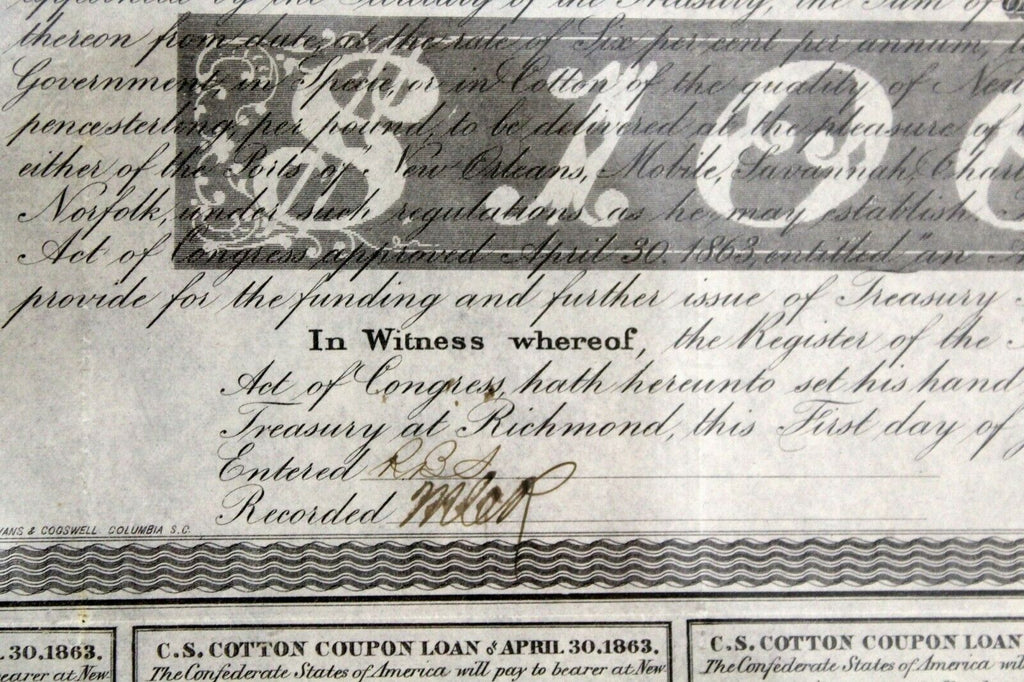 appointed by the Secretary of the Treasury, the Sum of
thereon from date, at the rate of Six per cent per annum
Government, in Specie, or in Cotton of the quality of New
pence sterling, per pound, to be delivered at the pleasure of
either of the Ports of New Orleans, Mobile, Savannah, Char
Norfolk, under such regulations as he may establish.
Act of Congress, approved April 30. 1863, entitled "an
provide for the funding and further issue of Treasury
$100
In Witness whereof, the Register of the
Act of Congress, hath hereunto set his hand
Treasury at Richmond, this First day of
Entered
Recorded
VANS & COGSWELL COLUMBIA S.C.
L 30.1863. C.S. COTTON COUPON LOAN of APRIL 30.1863. C.S. COTTON COUPON LOAN
earer at New The Confederate States of America will pay to bearer at New The Confederate States of America will